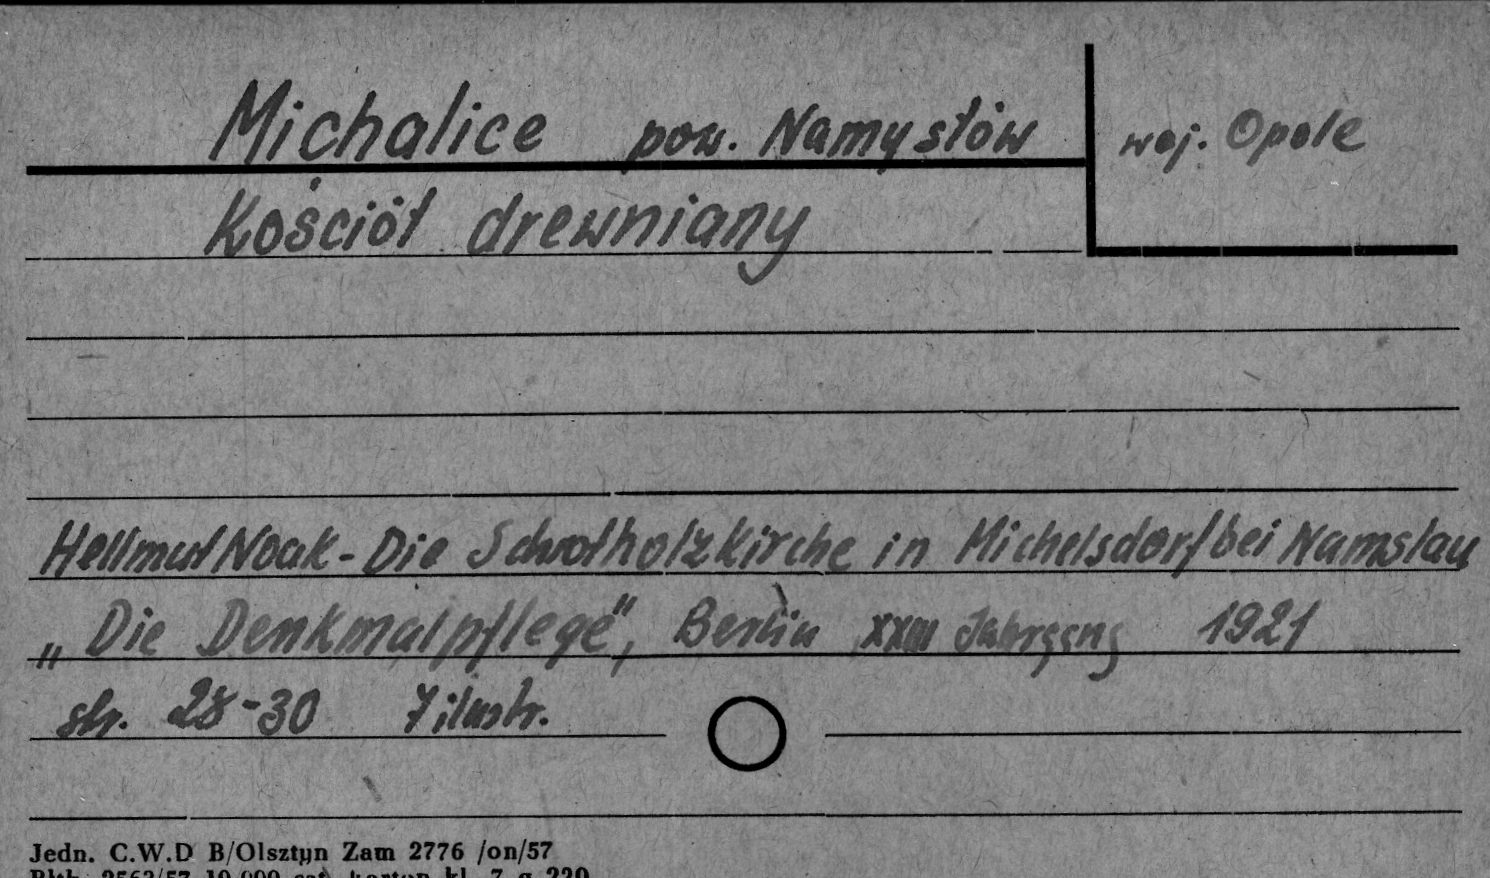 Michalice pow. Namysłów woj. Opole
Kościół drewniany
Hellmut Noak - Die Schrotholzkirche in Michelsdorf bei Namslau
„Die Denkmalpflege", Berlin XXIII Jahrgang 1921
str. 28-30 7 ilustr.
Jedn. C.W.D B/Olsztyn Zam 2776 /on/57
2563/57 10.000 karton kl. 7 g 220